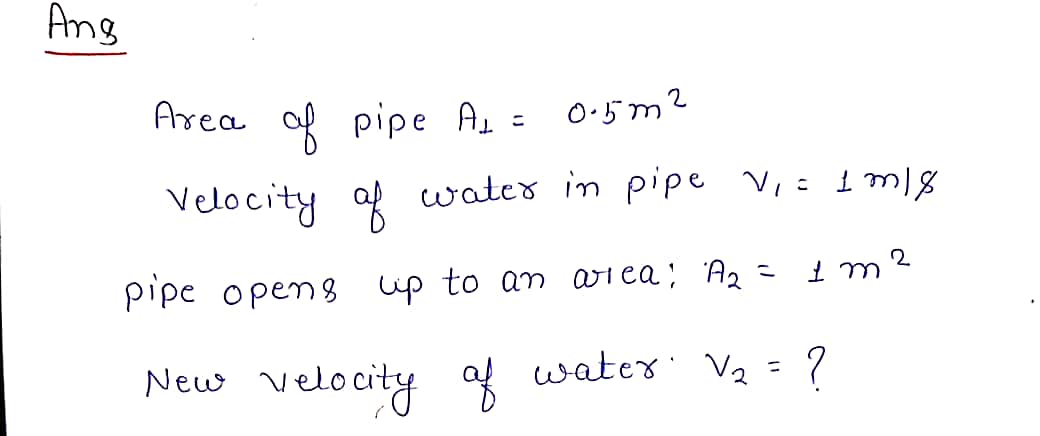 Ans
Area of pipe A₁ = 0.5 m²
Velocity of water in pipe V₁ = 1 m/s
pipe opens up to an area; A₂ = 1 m²
New velocity of water V₂ = ?